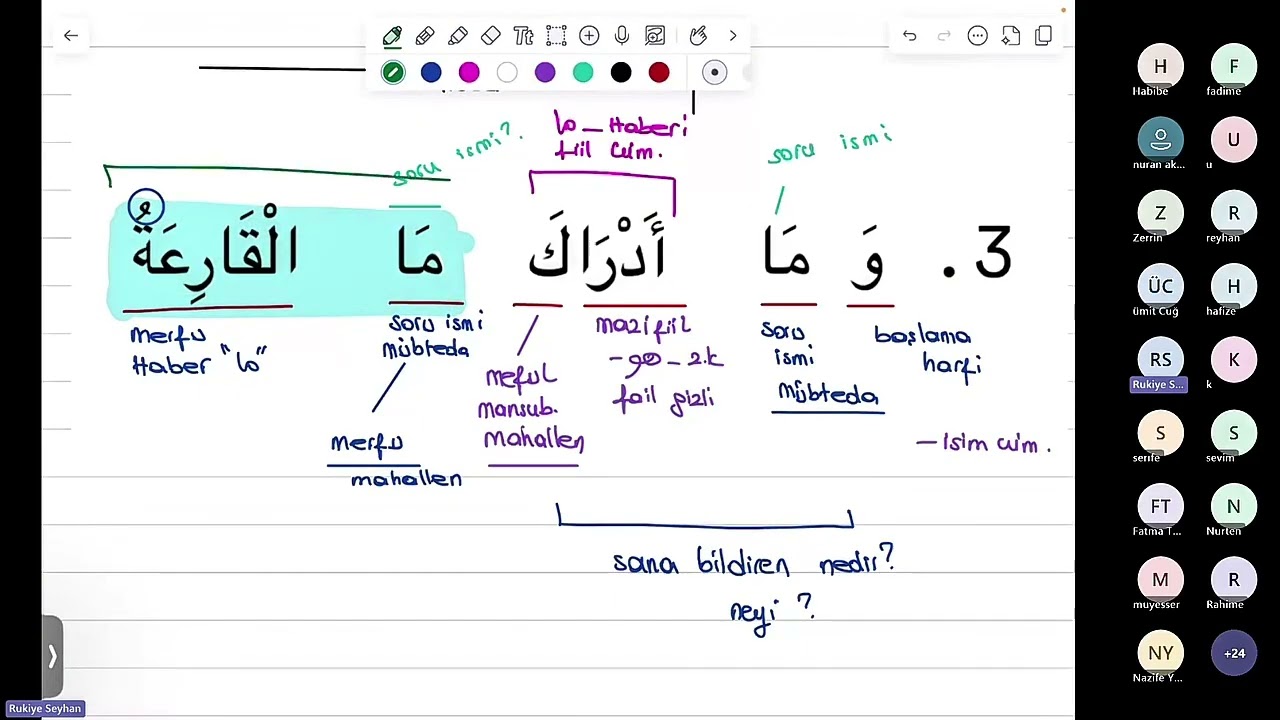 Tt
lo _ Haberi
fiil cüm.
soru ismi?
soru ismi
3. وَ مَا أَدْرَاكَ مَا الْقَارِعَةُ
merfu
Haber "lo"
soru ismi
mübteda
merfu
mahallen
meful
mansub.
mahallen
mazi fiil
2.k
fail gizli
soru
ismi
mübteda
başlama
harfi
— isim cüm.
sana bildiren nedir?
neyi ?
H
Habibe
F
fadime
nuran ak...
U
u
Z
Zerrin
R
reyhan
ÜC
ümit Cuğ
H
hafize
RS
Rukiye S...
K
k
S
serife
S
sevim
FT
Fatma T...
N
Nurten
M
muyesser
R
Rahime
NY
Nazife Y...
+24
Rukiye Seyhan